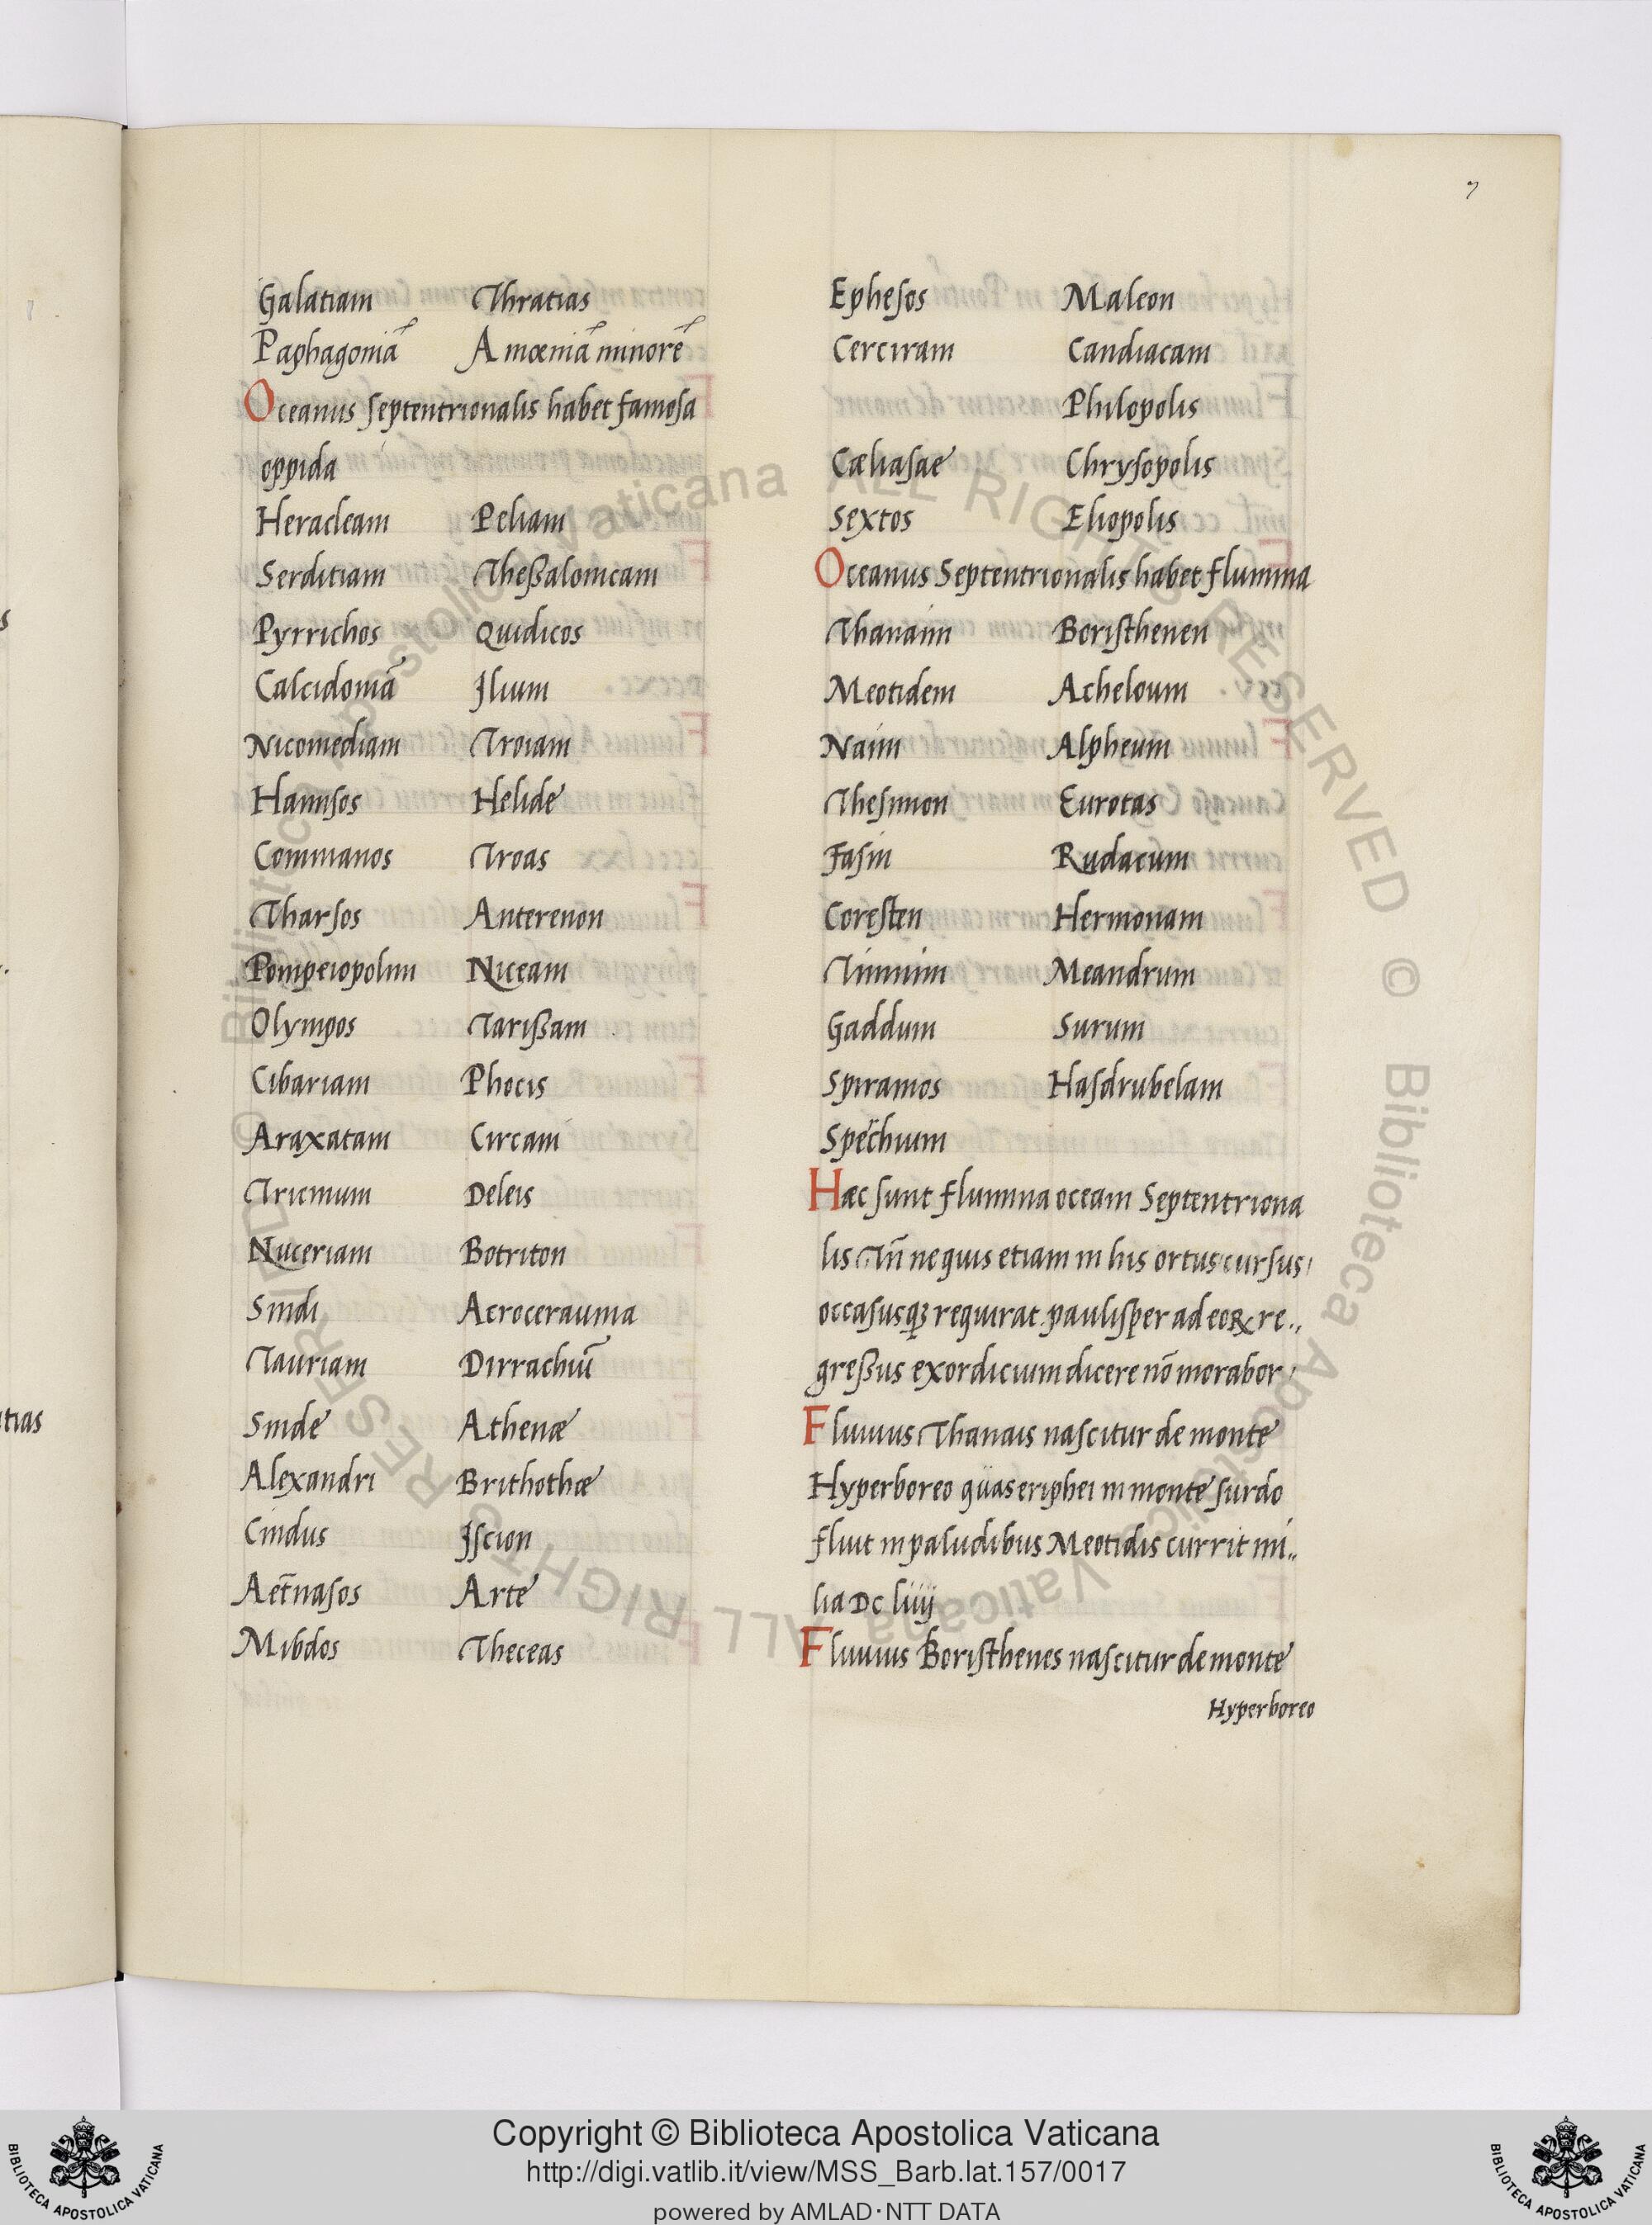 7
Galatiam Thratias
Paphagoniā Amœniā minorē
Oceanus septentrionalis habet famosa
oppida
Heracleam Peliam
Serditiam Theßalonicam
Pyrrichos Quidicos
Calcidoniā Jlium
Nicomediam Troiam
Hannsos Helide
Commanos Troas
Tharsos Anterenon
Pompeiopolim Niceam
Olympos Tarißam
Cibariam Phocis
Araxatam Circam
Tricmum Deleis
Nuceriam Botriton
Sindi Acroceraunia
Tauriam Dirrachiū
Sinde Athenæ
Alexandri Brithothæ
Cindus Jscion
Aet̄nasos Arte
Mibdos Theceas
Ephesos Maleon
Cerciram Candiacam
Philopolis
Cæliasae Chrysopolis
Sextos Eliopolis
Oceanus Septentrionalis habet flumina
Thanaim Boristhenen
Meotidem Acheloum
Naim Alpheum
Thesinion Eurotas
Fasin Rudacum
Coresten Hermonam
Timnim Meandrum
Gaddum Surum
Spiramos Hasdrubelam
Sperchium
Hæc sunt flumina oceani Septentriona
lis Tn̄ ne quis etiam in his ortus cursus
occasusqꝫ requirat paulisper ad eoꝝ re..
greßus exordicium dicere nō morabor
Fluuius Thanais nascitur de monte
Hyperboreo qüas eriphei in monte surdo
fluit in paludibus Meotidis currit mi..
lia DC liiij
Fluuius Boristhenes nascitur de monte
Hyperboreo
tias
Copyright © Biblioteca Apostolica Vaticana
http://digi.vatlib.it/view/MSS_Barb.lat.157/0017
powered by AMLAD·NTT DATA
BIBLIOTECA APOSTOLICA VATICANA
BIBLIOTECA APOSTOLICA VATICANA